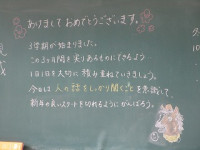 あけまして おめでとうございます。
3学期が始まりました。
この3ヶ月間を実りあるものにできるよう
1日1日を大切に積み重ねていきましょう。
今日は 人の話をしっかり聞くことを意識して、
新年の良いスタートを切れるようにがんばろう。